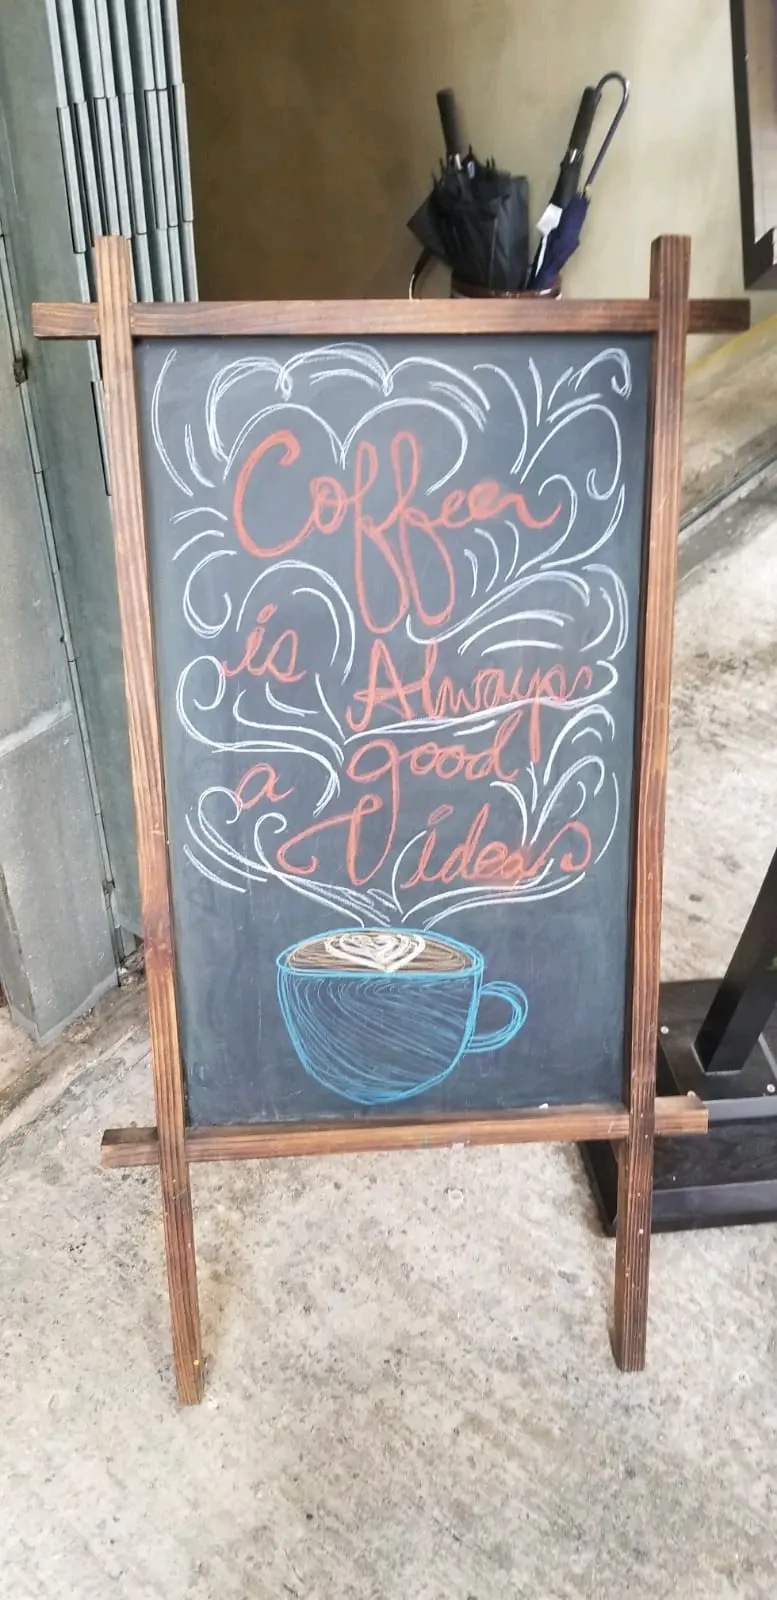 Coffee
is Always
a good
idea